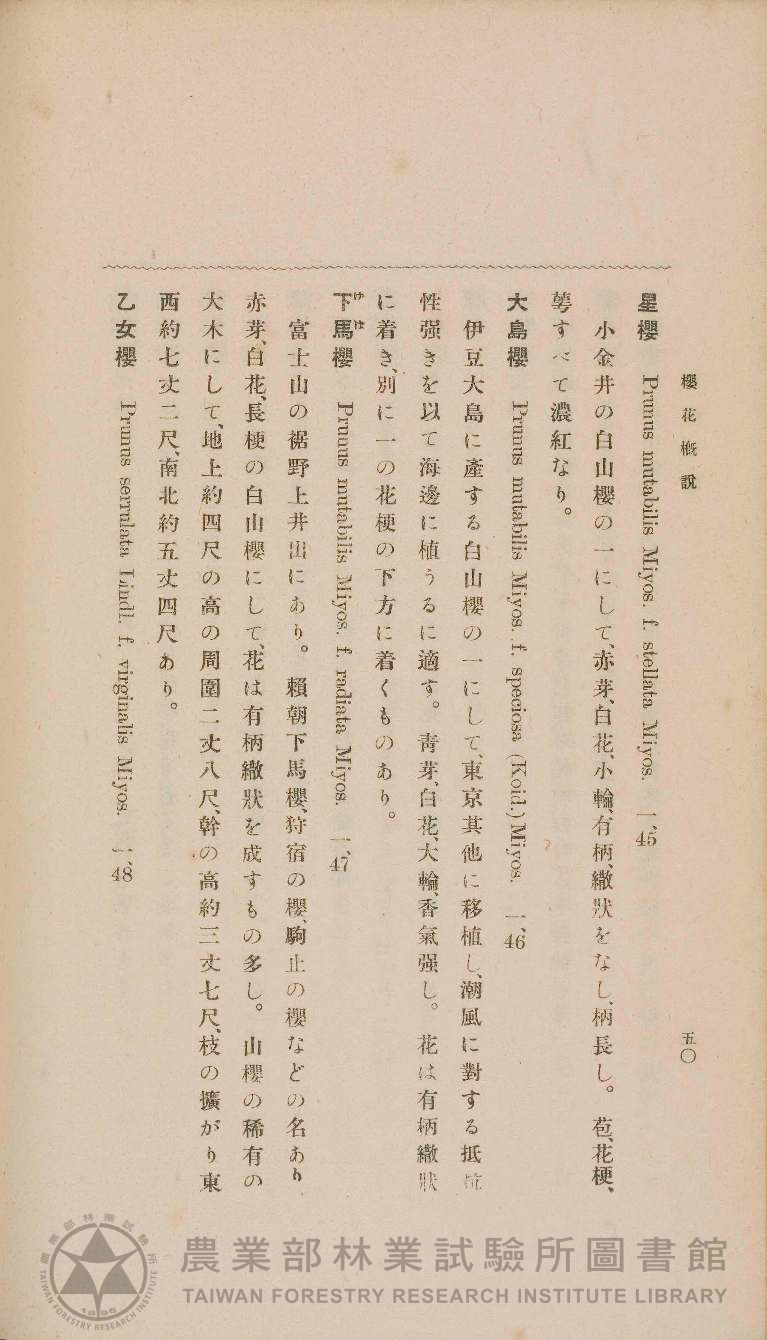 櫻花槪說
五〇
星櫻 Prunus mutabilis Miyos. f. stellata Miyos. 一、45
小金井の白山櫻の一にして、赤芽、白花、小輪、有柄、繖狀をなし、柄長し。苞、花梗、
萼すべて濃紅なり。
大島櫻 Prunus mutabilis Miyos. f. speciosa (Koid.) Miyos. 一、46
伊豆大島に產する白山櫻の一にして、東京其他に移植し、潮風に對する抵抗
性强きを以て海邊に植うるに適す。靑芽、白花、大輪、香氣强し。花は有柄繖狀
に着き、別に一の花梗の下方に着くものあり。
下馬櫻 Prunus mutabilis Miyos. f. radiata Miyos. 一、47
げば
富士山の裾野上井出にあり。賴朝下馬櫻、狩宿の櫻、駒止の櫻などの名あり
赤芽、白花、長梗の白山櫻にして、花は有柄繖狀を成すもの多し。山櫻の稀有の
大木にして、地上約四尺の高の周圍二丈八尺、幹の高約三丈七尺、枝の擴がり東
西約七丈二尺、南北約五丈四尺あり。
乙女櫻 Prunus serrulata Lindl. f. virginalis Miyos. 一、48
農業部林業試驗所圖書館
TAIWAN FORESTRY RESEARCH INSTITUTE LIBRARY
農業部林業試驗所
TAIWAN FORESTRY RESEARCH INSTITUTE
1895